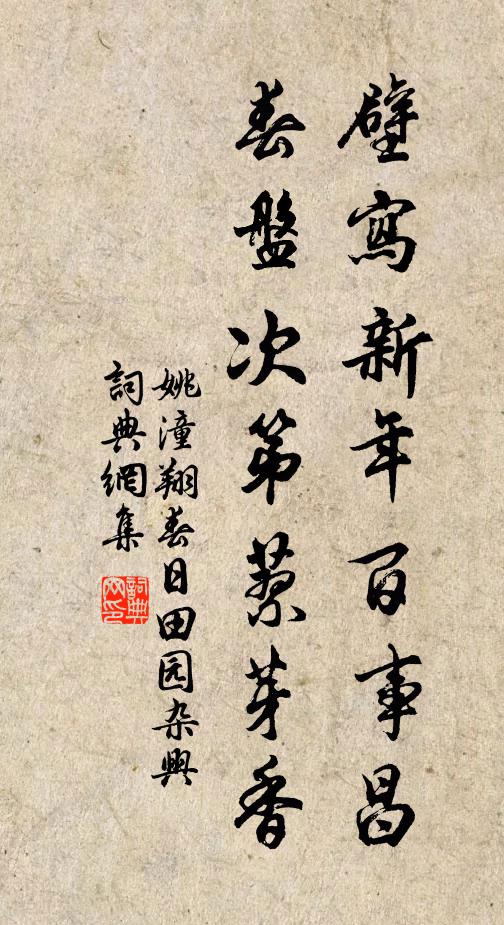 壁寫新年百事昌
春盤次第蓼芽香
姚潼翔春日田园杂興
詞典網集
詞典网印